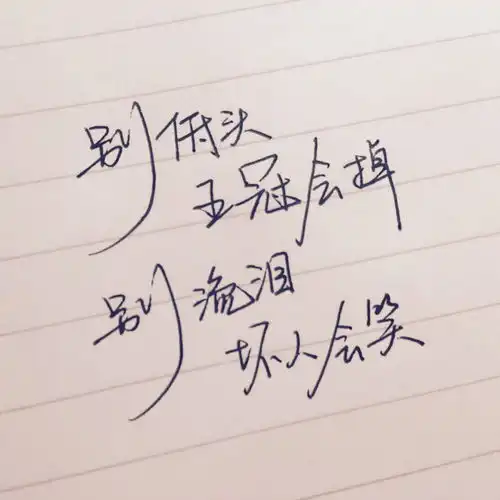 别低头
王冠会掉
别流泪
坏人会笑